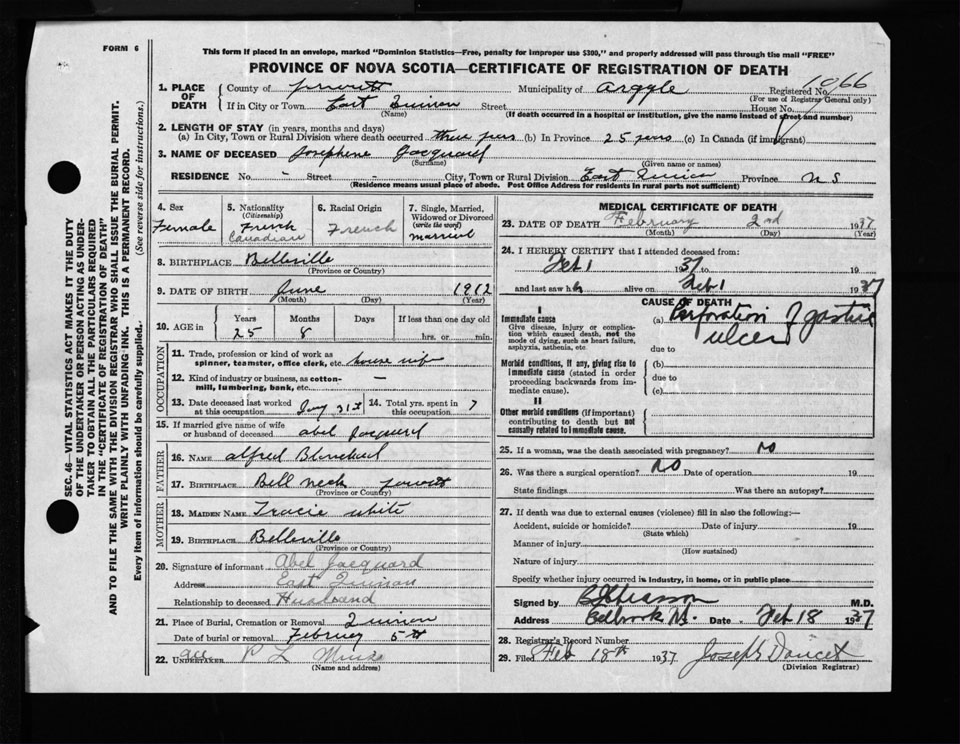 FORM 6
This form if placed in an envelope, marked "Dominion Statistics—Free, penalty for improper use $300," and properly addressed will pass through the mail "FREE"
PROVINCE OF NOVA SCOTIA—CERTIFICATE OF REGISTRATION OF DEATH
SEC. 46—VITAL STATISTICS ACT MAKES IT THE DUTY
OF THE UNDERTAKER OR PERSON ACTING AS UNDER-
TAKER TO OBTAIN ALL THE PARTICULARS REQUIRED
IN THE "CERTIFICATE OF REGISTRATION OF DEATH"
AND TO FILE THE SAME WITH THE DIVISION REGISTRAR WHO SHALL ISSUE THE BURIAL PERMIT.
WRITE PLAINLY WITH UNFADING INK. THIS IS A PERMANENT RECORD.
Every item of information should be carefully supplied. (See reverse side for instructions.)
1. PLACE OF DEATH County of Municipality of Argyle Registered No. 1066
(For use of Registrar General only)
If in City or Town East Quinan Street House No.
(Name) (If death occurred in a hospital or institution, give the name instead of street and number)
2. LENGTH OF STAY (in years, months and days)
(a) In City, Town or Rural Division where death occurred three years (b) In Province 25 years (c) In Canada (if immigrant)
3. NAME OF DECEASED Josephine Jacquard
(Surname) (Given name or names)
RESIDENCE No. - Street - City, Town or Rural Division East Quinan Province N S
(Residence means usual place of abode. Post Office Address for residents in rural parts not sufficient)
4. Sex Female
5. Nationality (Citizenship) French Canadian
6. Racial Origin French
7. Single, Married, Widowed or Divorced (write the word) married
8. BIRTHPLACE Belleville
(Province or Country)
9. DATE OF BIRTH June 1912
(Month) (Day) (Year)
10. AGE in Years Months Days If less than one day old
25 8 hrs. or min.
OCCUPATION
11. Trade, profession or kind of work as spinner, teamster, office clerk, etc. house wife
12. Kind of industry or business, as cotton-mill, lumbering, bank, etc. —
13. Date deceased last worked at this occupation Jany 31st 14. Total yrs. spent in this occupation 7
15. If married give name of wife or husband of deceased abel Jacquard
FATHER
16. NAME alfred
17. BIRTHPLACE Bell neck
(Province or Country)
MOTHER
18. MAIDEN NAME white
19. BIRTHPLACE Belleville
(Province or Country)
20. Signature of informant Abel Jacquard
Address East Quinan
Relationship to deceased Husband
21. Place of Burial, Cremation or Removal Quinan
Date of burial or removal February 5th
22. UNDERTAKER P L
(Name and address)
MEDICAL CERTIFICATE OF DEATH
23. DATE OF DEATH February 2nd 1937
(Month) (Day) (Year)
24. I HEREBY CERTIFY that I attended deceased from:
Feb 1 1937 to 19
and last saw her alive on Feb 1 1937
CAUSE OF DEATH
I
Immediate cause
Give disease, injury or complication which caused death, not the mode of dying, such as heart failure, asphyxia, asthenia, etc.
(a) Perforation of gastric ulcer
due to
Morbid conditions, if any, giving rise to immediate cause (stated in order proceeding backwards from immediate cause).
(b)
due to
(c)
II
Other morbid conditions (if important) contributing to death but not causally related to immediate cause.
25. If a woman, was the death associated with pregnancy? No
26. Was there a surgical operation? No Date of operation 19
State findings Was there an autopsy?
27. If death was due to external causes (violence) fill in also the following:—
Accident, suicide or homicide? Date of injury 19
(State which)
Manner of injury
(How sustained)
Nature of injury
Specify whether injury occurred in industry, in home, or in public place
Signed by M.D.
Address Date Feb 18 1937
28. Registrar's Record Number
29. Filed Feb 18th 1937 Joseph Doucet
(Division Registrar)